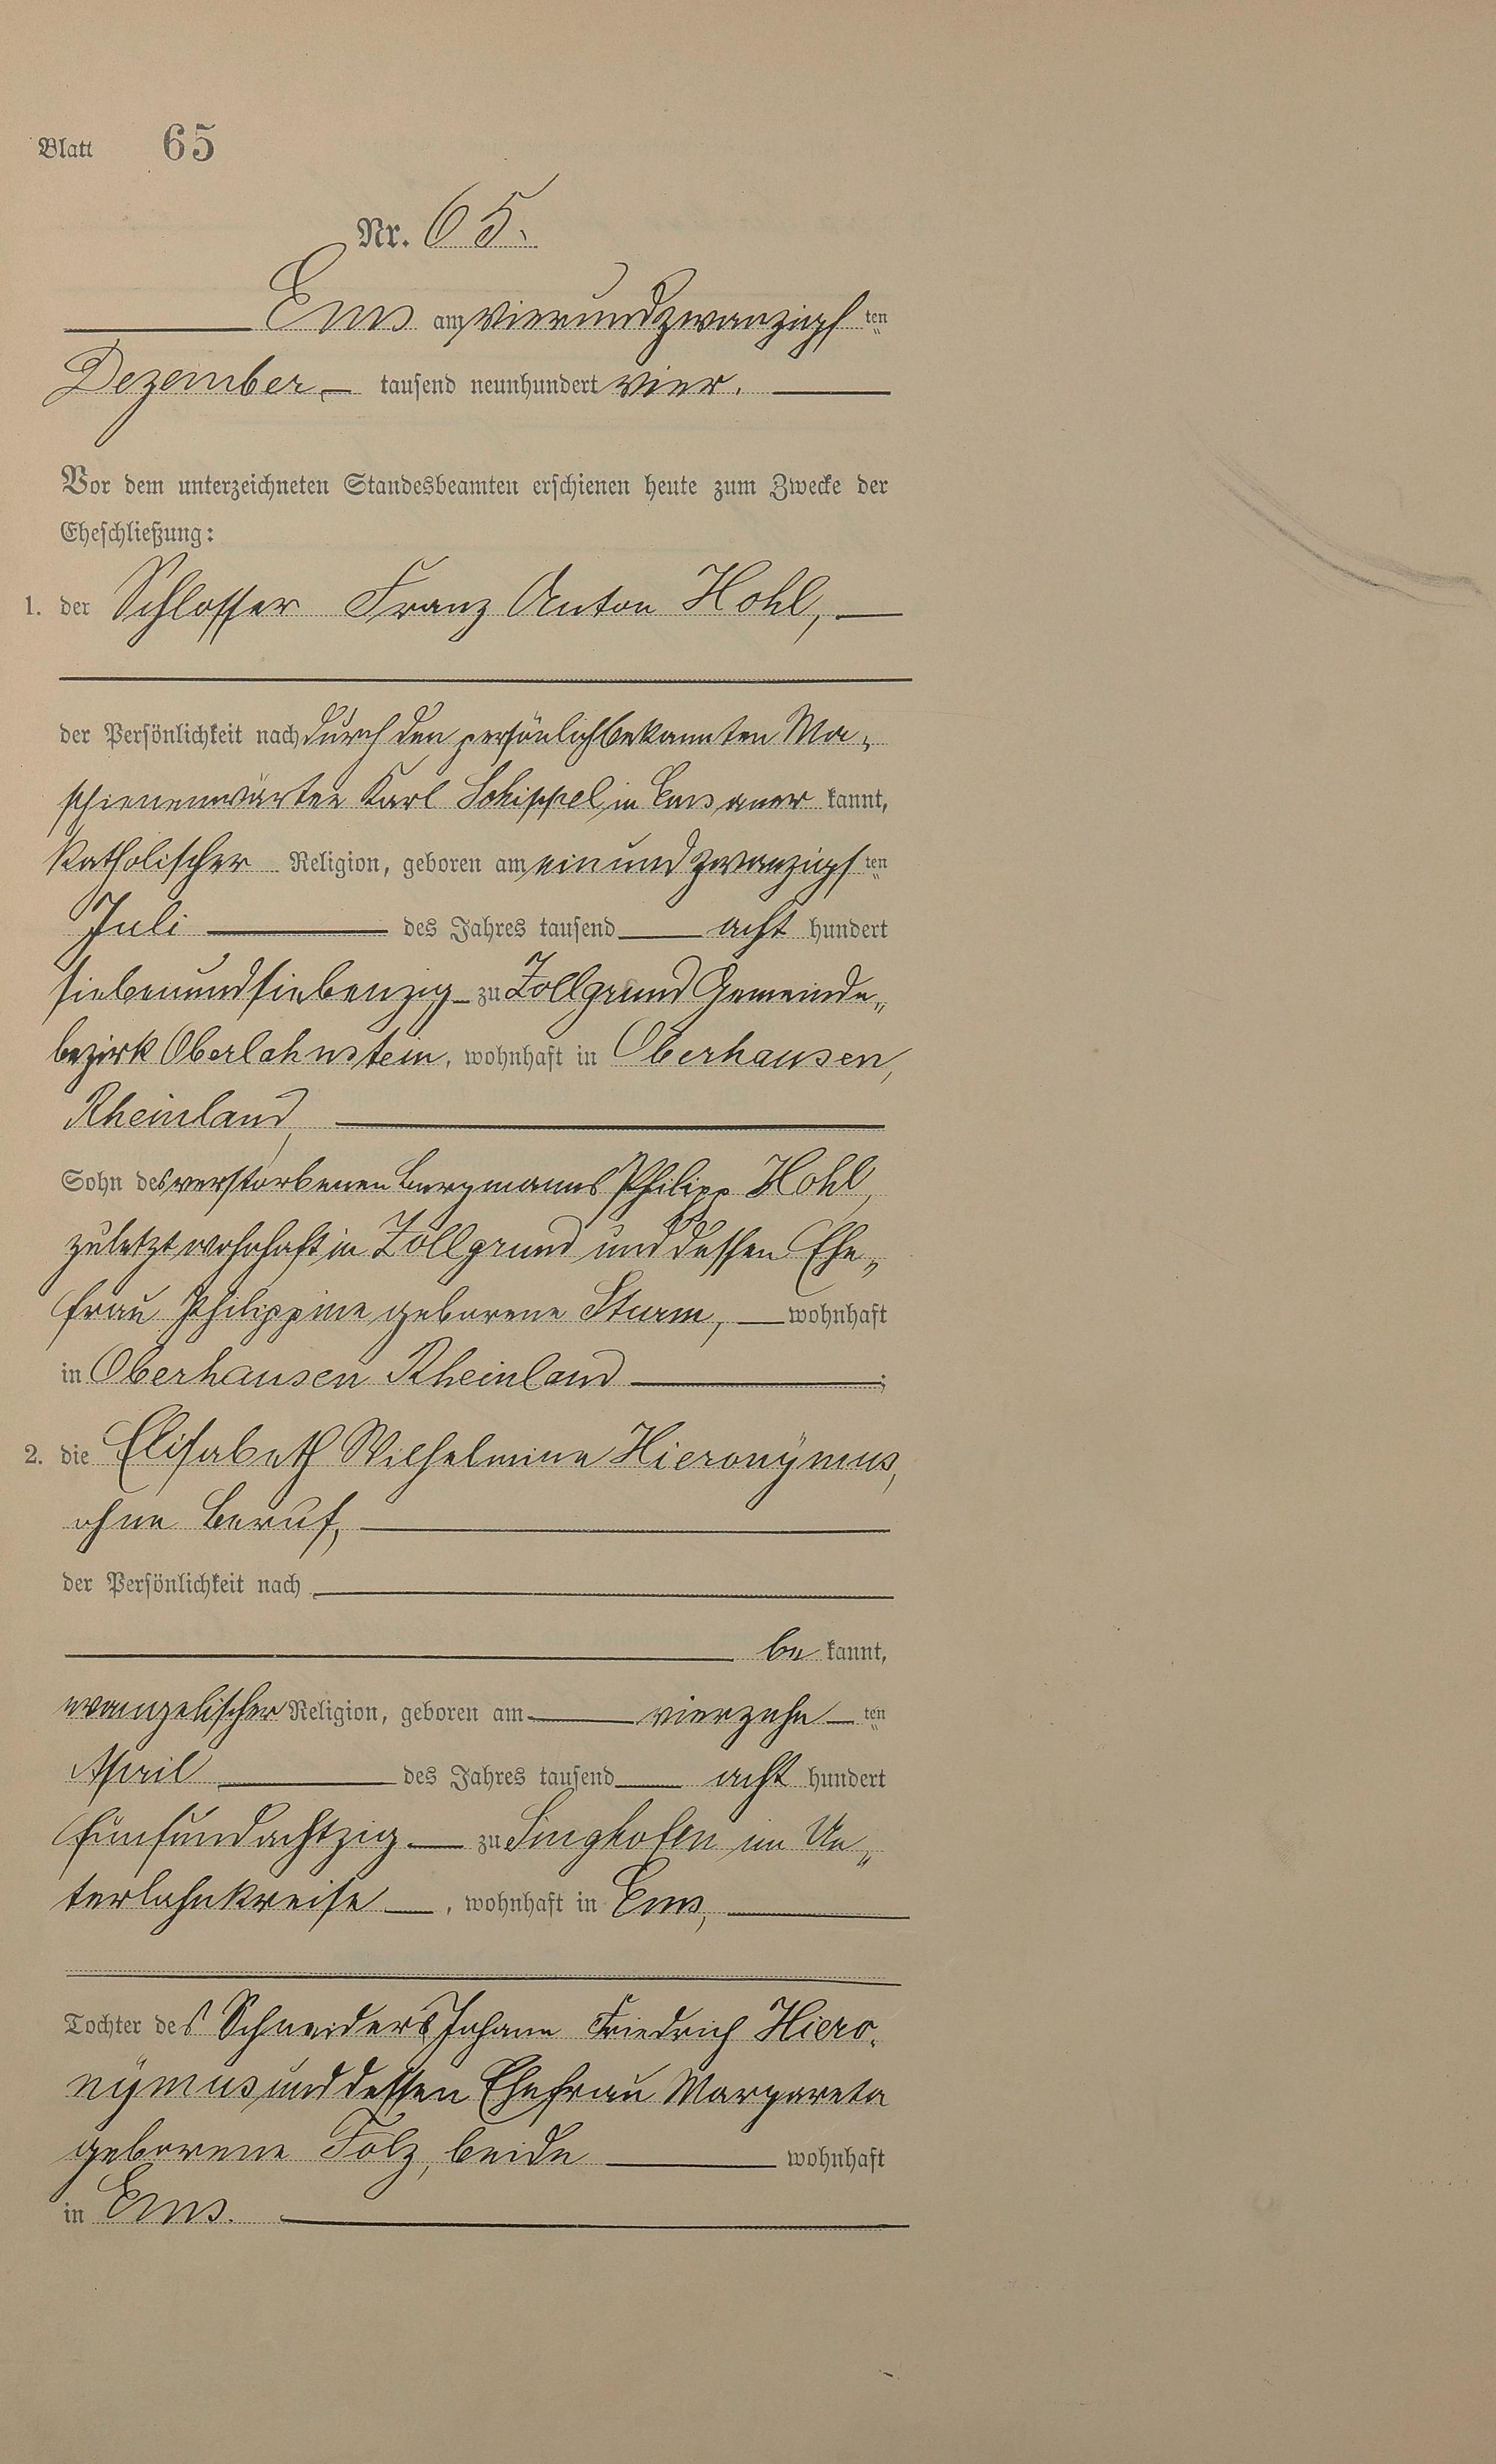 Blatt 65
Nr. 65.
Ems am vierundzwanzigsten
Dezember tausend neunhundert vier.
Vor dem unterzeichneten Standesbeamten erschienen heute zum Zwecke der
Eheschließung:
1. der Schlosser Franz Anton Hohl,
der Persönlichkeit nach durch den persönlich bekannten Ma-
schienenwärter Karl Schippel in Ems aner kannt,
katholischer Religion, geboren am einundzwanzigsten
Juli des Jahres tausend acht hundert
siebenundsiebenzig zu Zollgrund Gemeinde-
bezirk Oberlahnstein, wohnhaft in Oberhausen,
Rheinland,
Sohn des verstorbenen Bergmanns Philipp Hohl,
zuletzt wohnhaft in Zollgrund und dessen Ehe-
frau Philippine geborene Sturm, wohnhaft
in Oberhausen Rheinland ;
2. die Elisabeth Wilhelmine Hieronÿmus,
ohne Beruf,
der Persönlichkeit nach
be kannt,
evangelischer Religion, geboren am vierzehn ten
April des Jahres tausend acht hundert
fünfundachtzig zu Singhofen im Un-
terlahnkreise , wohnhaft in Ems,
Tochter des Schneiders Johann Friedrich Hiero-
nÿmus und dessen Ehefrau Margareta
geborene Folz, beide wohnhaft
in Ems.